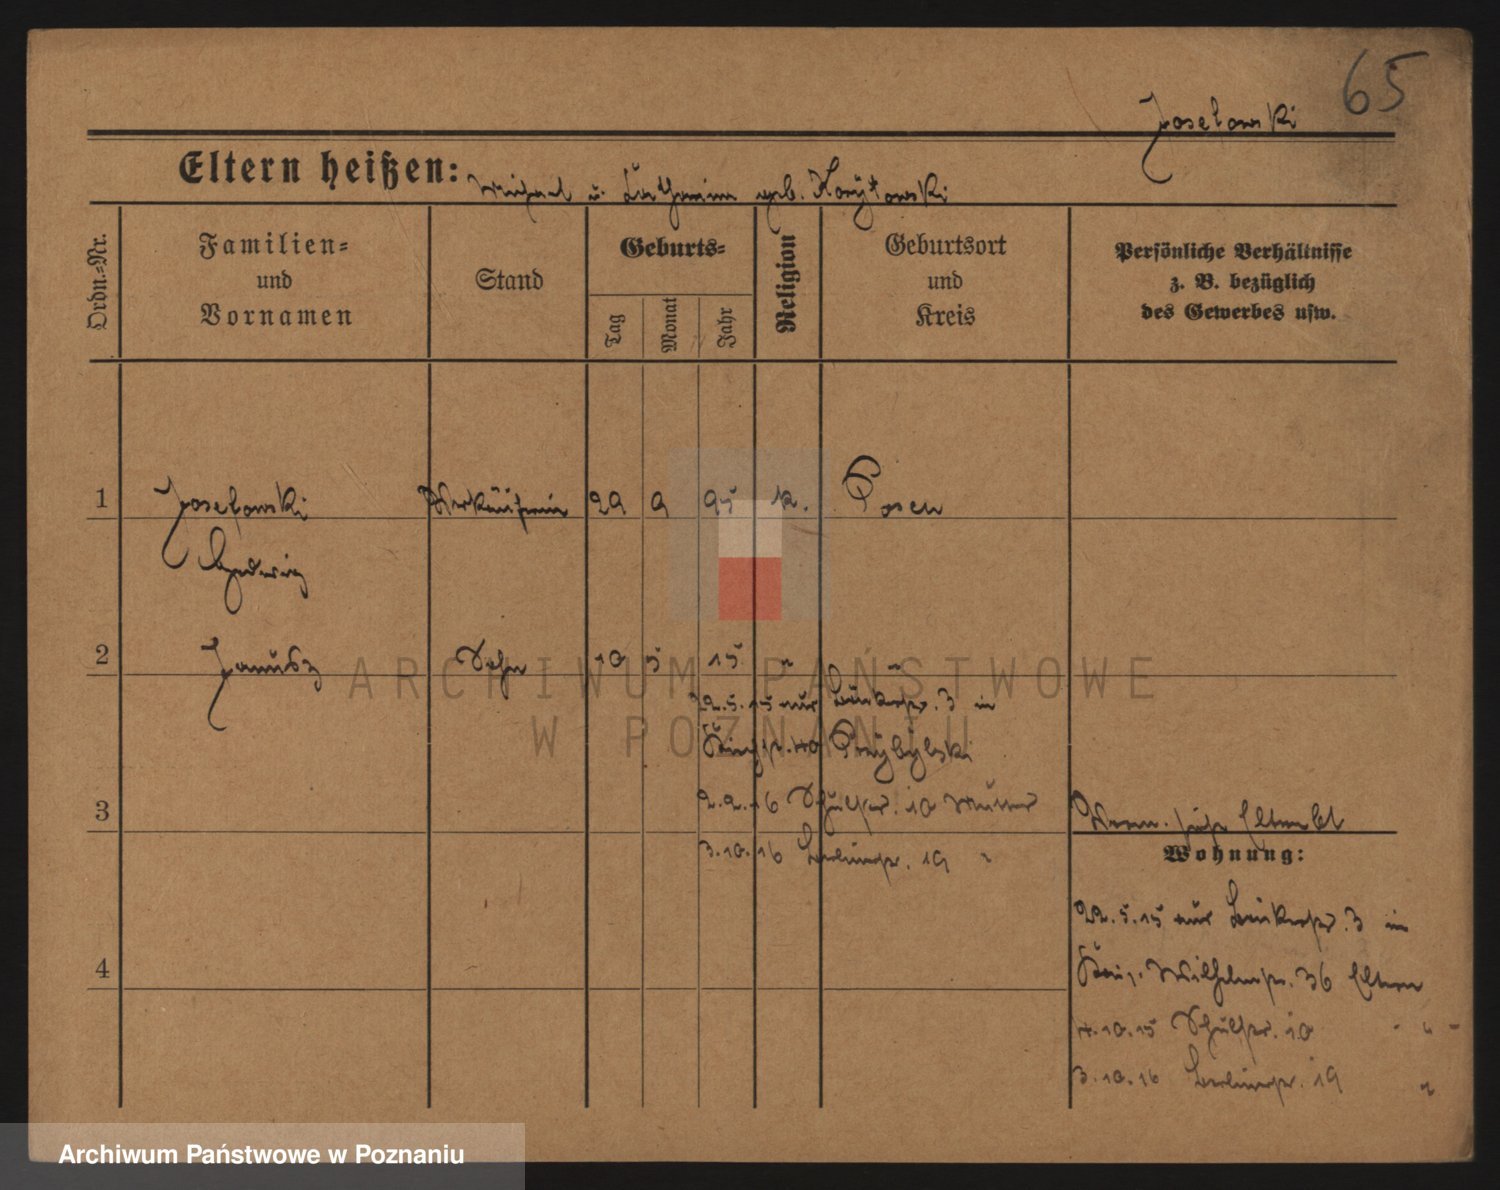 65
Joselowski
Eltern heißen: Michael u. Katharina geb. Korytowski
Ordn.=Nr.
Familien= und Vornamen
Stand
Geburts=
Tag
Monat
Jahr
Religion
Geburtsort und Kreis
Persönliche Verhältnisse z. B. bezüglich des Gewerbes usw.
1 Joselowski Verkäuferin 29 9 95 k. Posen
Hedwig
2 Janusz Sohn 10 5 15 "
22.5.15 aus 3 in
40 Przybylski
2.2.16 Schulstr. 10 Mutter
3.10.16 Berlinerstr. 19 "
3
4
Wohnung:
22.5.15 aus 3 in
Wilhelmstr. 36 Eltern
4.10.15 Schulstr. 10 " " "
3.10.16 Berlinerstr. 19 "
ARCHIWUM PAŃSTWOWE
W POZNANIU
Archiwum Państwowe w Poznaniu